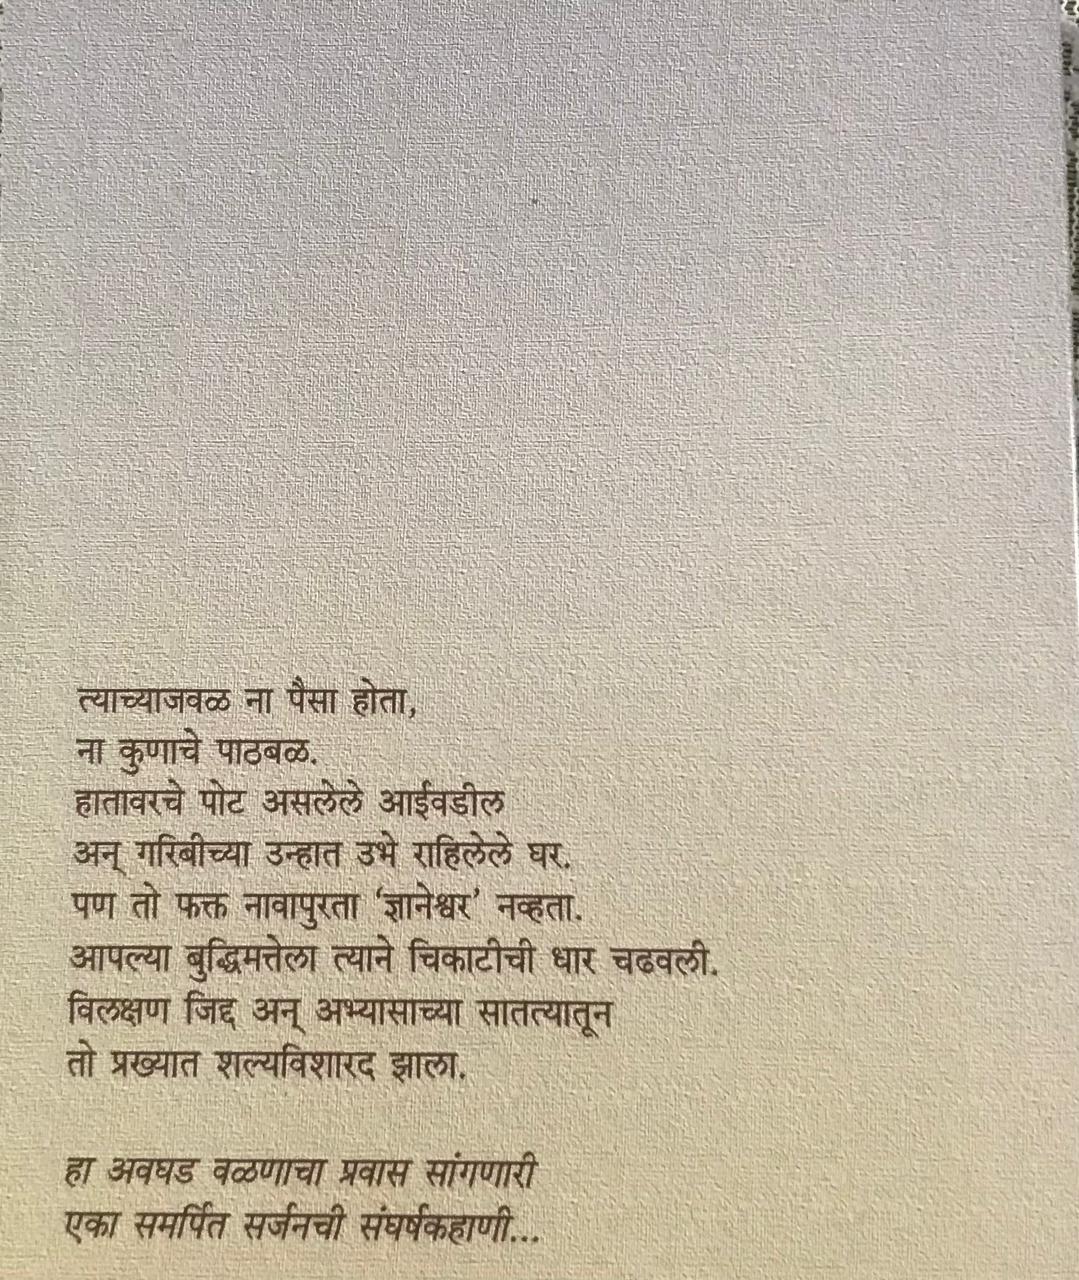 त्याच्याजवळ ना पैसा होता,
ना कुणाचे पाठबळ.
हातावरचे पोट असलेले आईवडील
अन् गरिबीच्या उन्हात उभे राहिलेले घर.
पण तो फक्त नावापुरता ‘ज्ञानेश्वर’ नव्हता.
आपल्या बुद्धिमत्तेला त्याने चिकाटीची धार चढवली.
विलक्षण जिद्द अन् अभ्यासाच्या सातत्यातून
तो प्रख्यात शल्यविशारद झाला.
हा अवघड वळणाचा प्रवास सांगणारी
एका समर्पित सर्जनची संघर्षकहाणी...